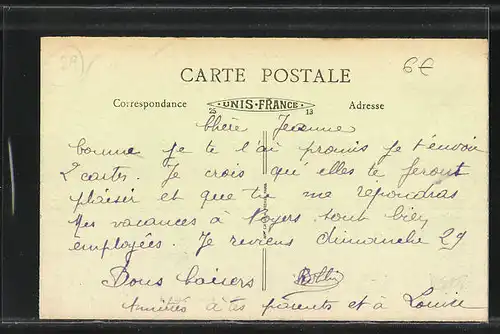 27
6€
CARTE POSTALE
Correspondance
UNIS-FRANCE
25 13
Adresse
Chère Jeanne
Comme je te l'ai promis je t'envoie
2 cartes. Je crois qu'elles te feront
plaisir et que tu me repondras
Mes vacances à Noyers sont bien
employées. Je reviens dimanche 29
Bons baisers
Amitiés à tes parents et à Louise